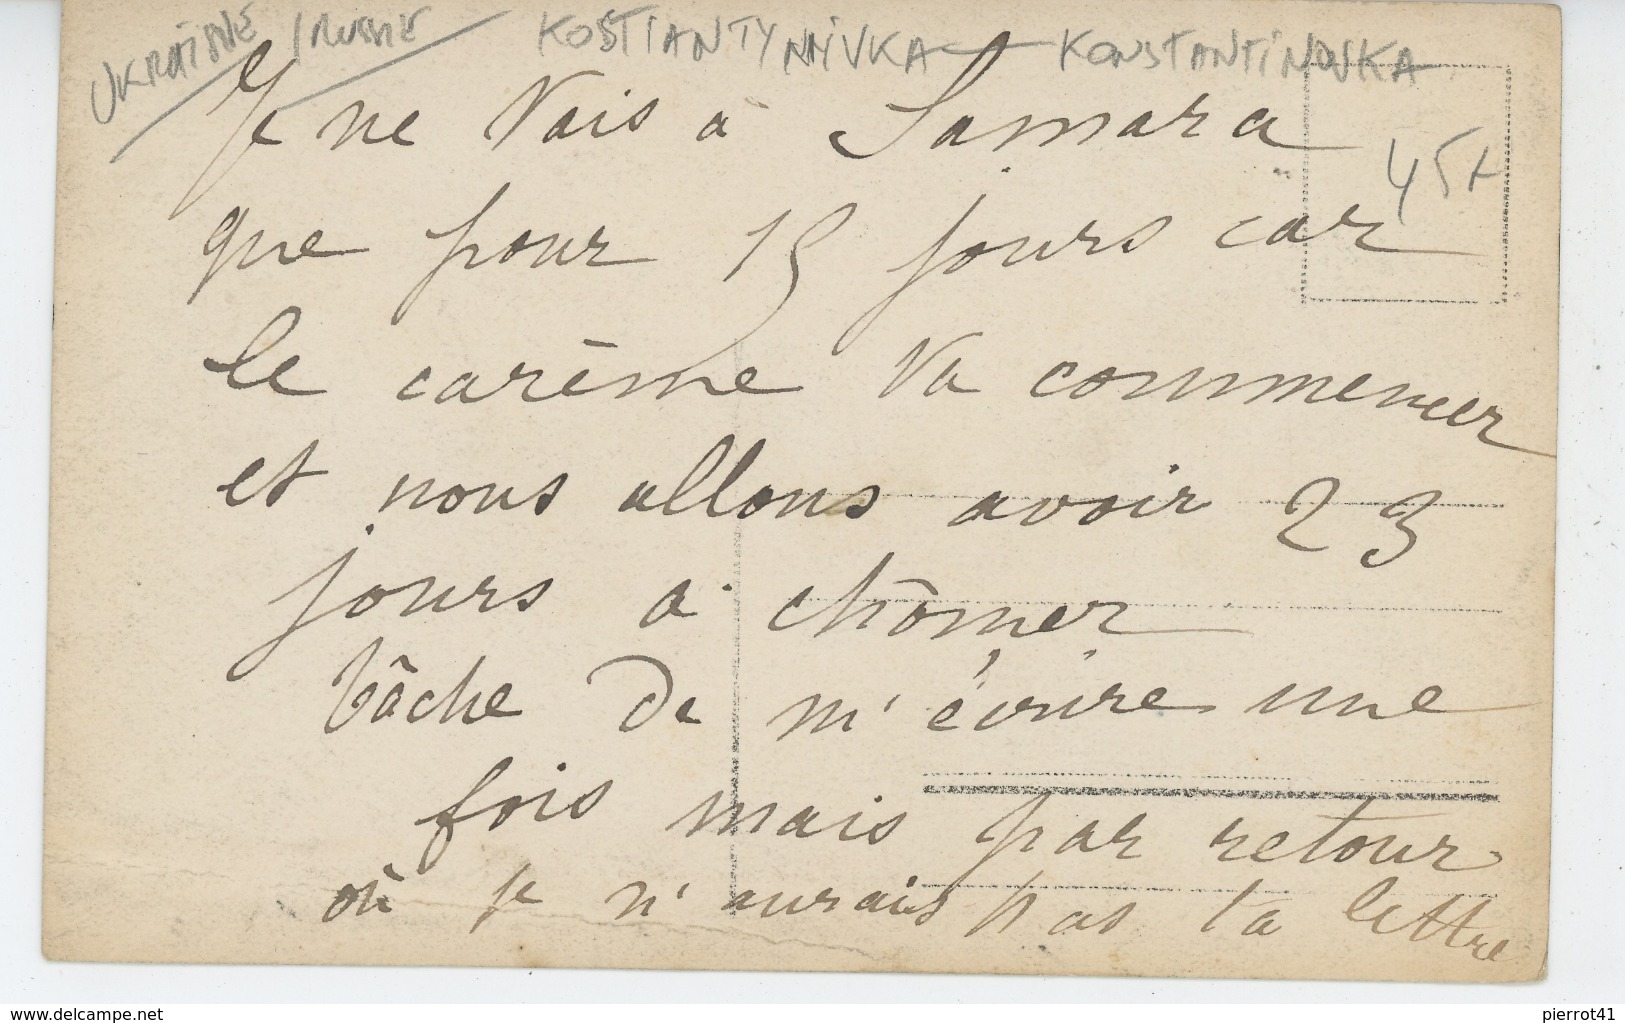 UKRAINE / RUSSIE KOSTIANTYNNIVKA - KONSTANTINOVKA
Je ne vais à Samara
45+
que pour 15 jours car
le carême va commencer
et nous allons avoir 23
jours à chômer
tâche de m'écrire une
fois mais par retour
où je n'aurais pas ta lettre
www.delcampe.net
pierrot41